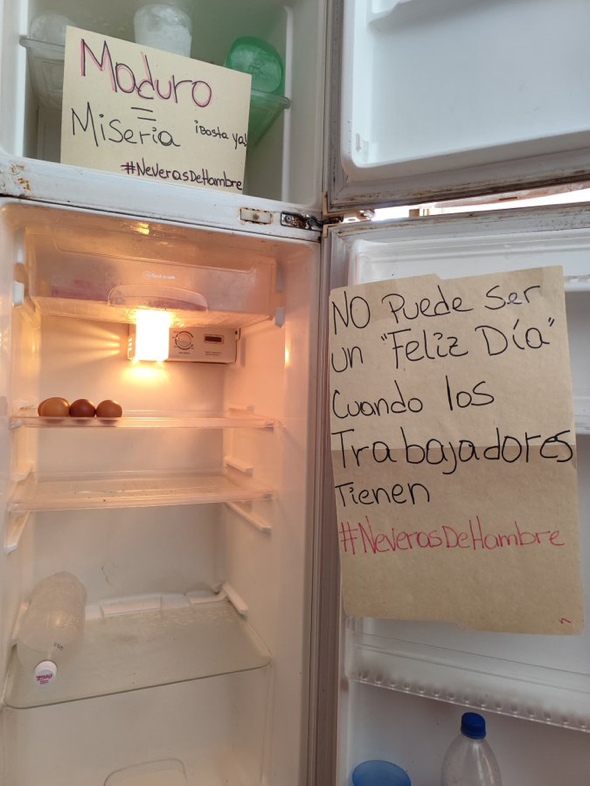 Maduro
=
Miseria ¡Basta ya!
#NeverasDeHambre
NO Puede Ser
un "Feliz Día"
Cuando los
Trabajadores
Tienen
#NeverasDeHambre